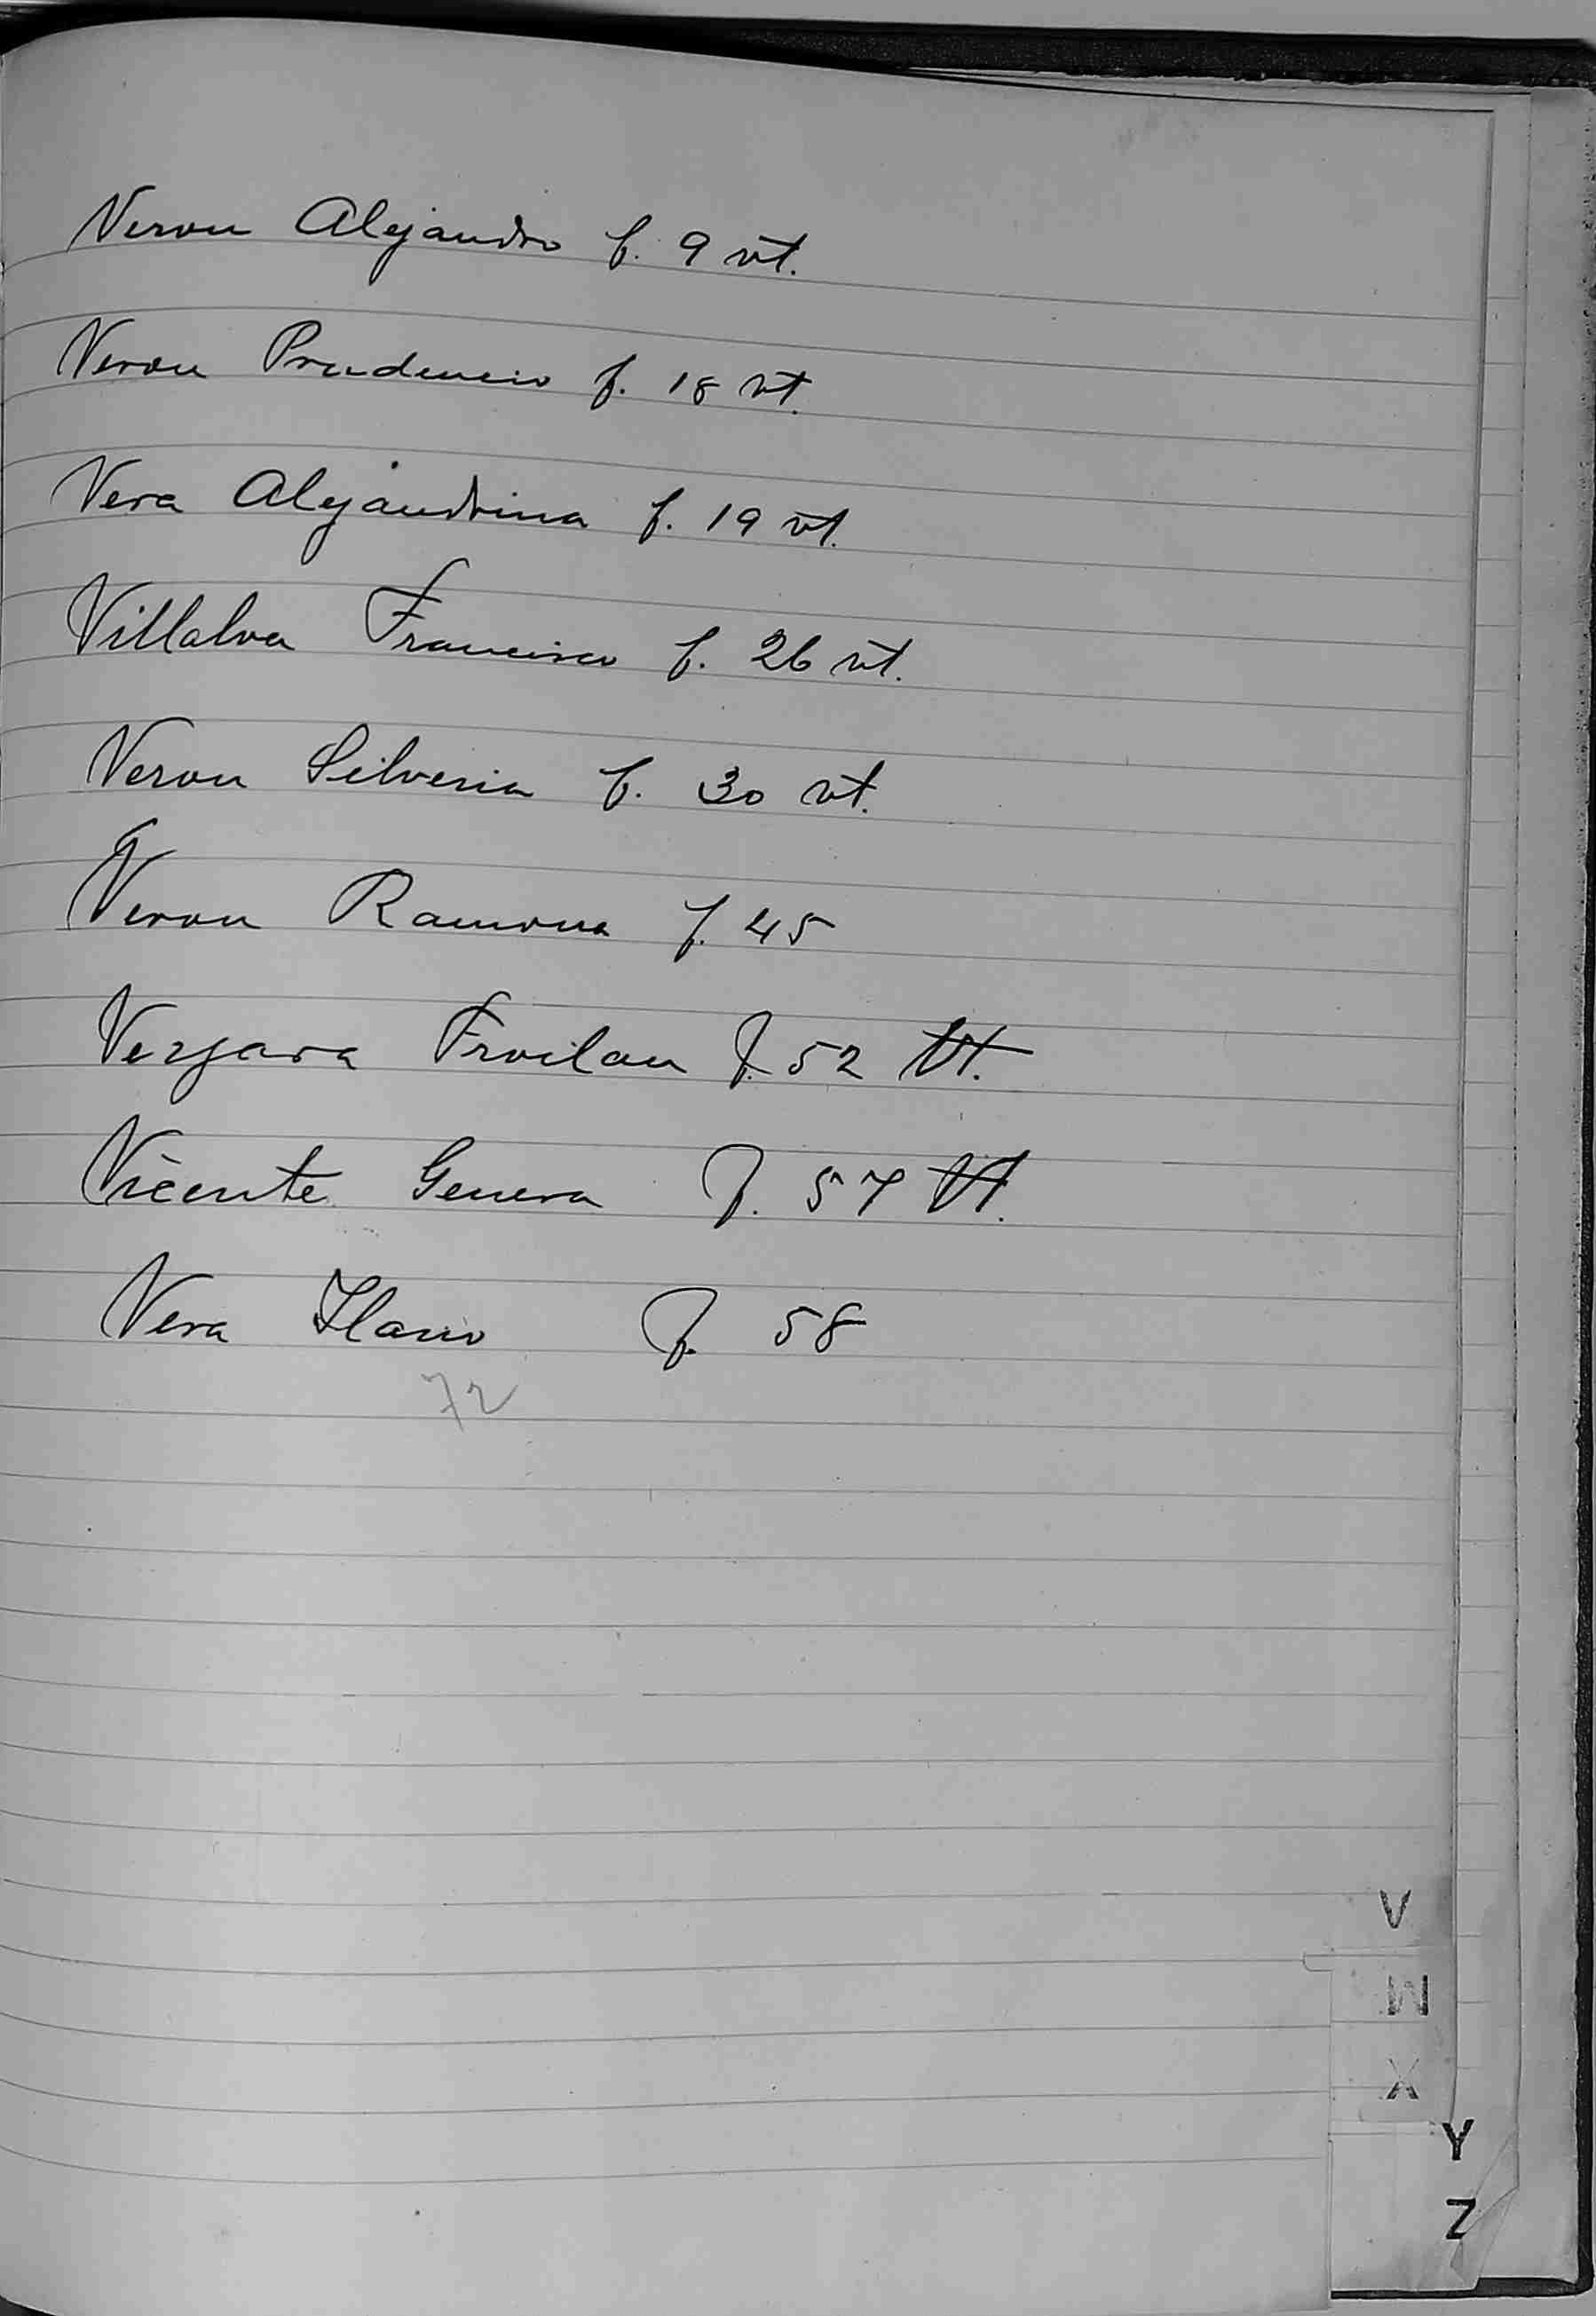 Veron Alejandro f. 9 vt.
Veron Prudencio f. 18 vt.
Vera Alejandrina f. 19 vt.
Villalva Francisco f. 26 vt.
Veron Silveria f. 30 vt.
Veron Ramona f. 45
Vergara Froilan f. 52 Vt.
Vicente Genera f. 57 Vt.
Vera Ilario f. 58
72
V
W
X
Y
Z